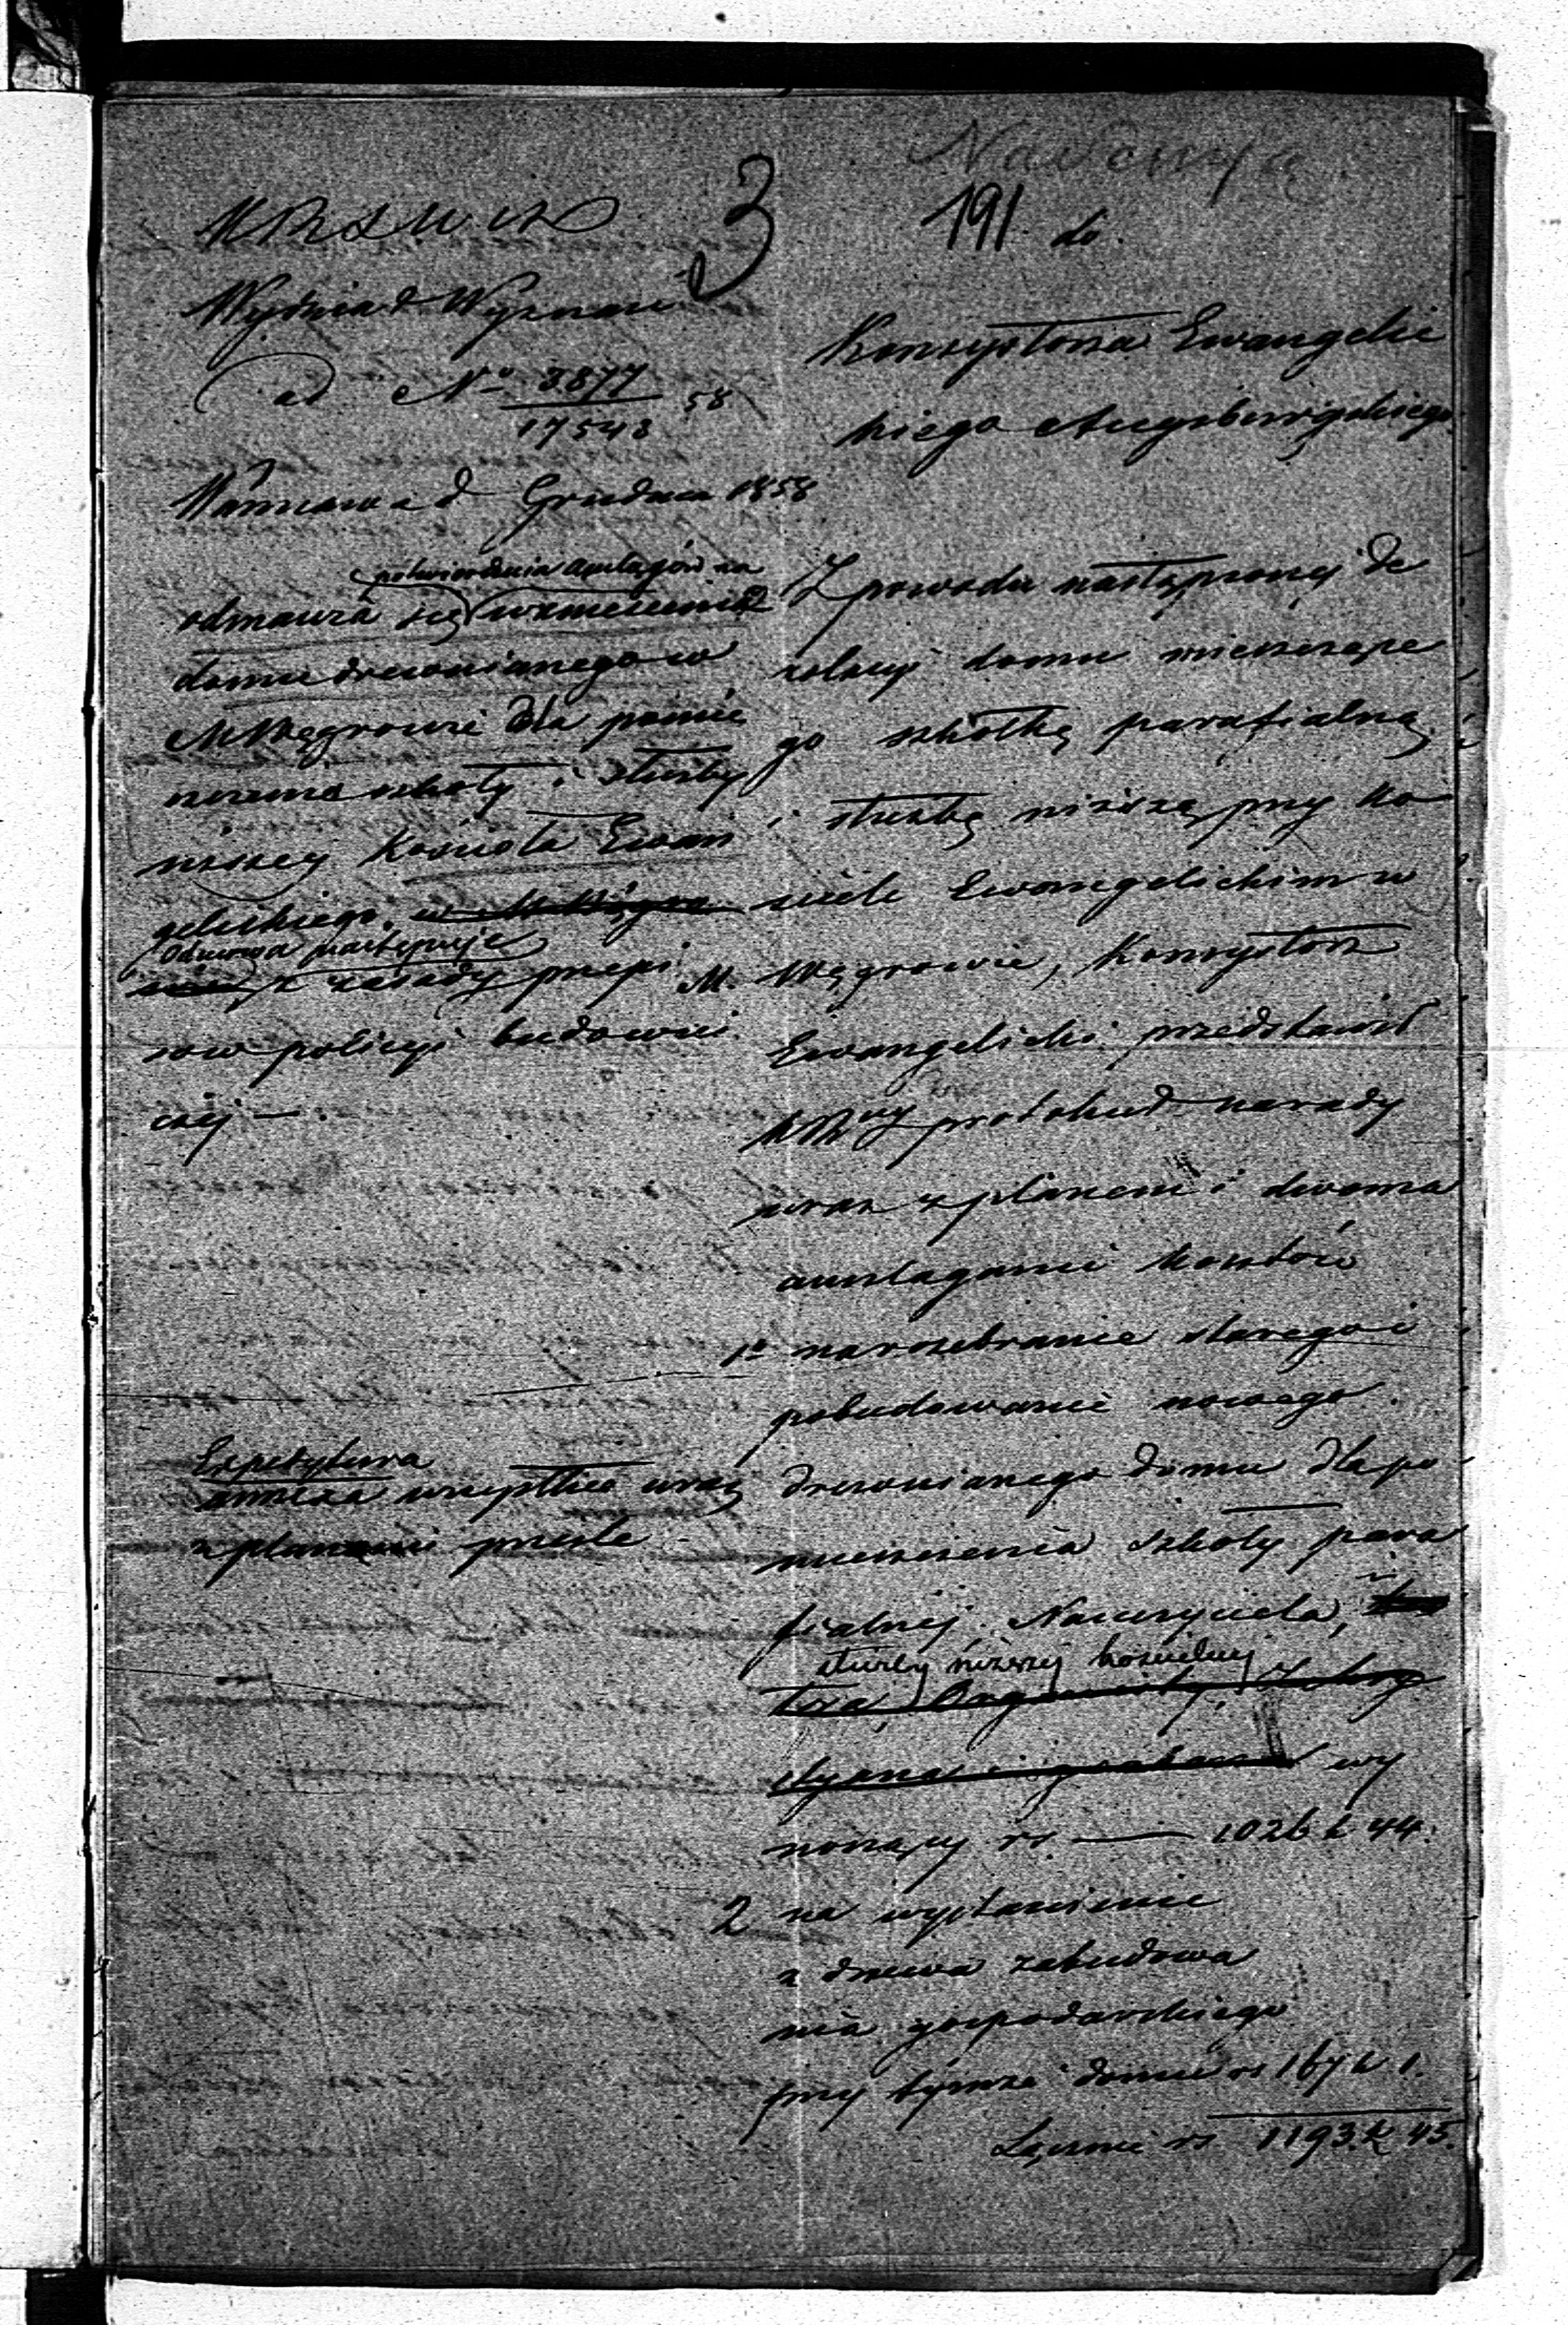 Na Sessyą
3
191
KRSWiD
Wydział Wyznań
ad No 3877/17543 58
Warszawa d Grudnia 1858
potwierdzenia anszlagów na
odmawia się wzniesienie
domu drewnianego w
M Węgrowie dla pomie
szczenia szkoły i służby
niższej Kościoła Ewan
gelickiego, w M Węgro
Odmowa następuje
z zasady przepi
sów policyi budowni
czej —
Expedytura
annexa wszystkie wraz
z planami prześle
do
Konsystorza Ewangelic
kiego Augsburgskiego
Z powodu nastąpionej de
zolacyi domu mieszczące
go szkółkę parafialną
i służbę niższą przy Ko
ściele Ewangelickim w
M. Węgrowie, Konsystorz
Ewangelicki przedstawił
KRządy protokuł narady
wraz z planem i dwoma
anszlagami kosztów
1o na rozebranie starego i
pobudowanie nowego
drewnianego domu dla po
mieszczenia szkoły para
fialnej, Nauczyciela, i
służby niższej kościelnej
tora, Organisty, Zakry
styana i grabarza wy
noszący rs. — 1026 k 44.
2 na wystawienie
z drzewa zabudowa
nia gospodarskiego
przy tymże domu rs 167 k 1.
Łącznie rs. 1193 k 45.